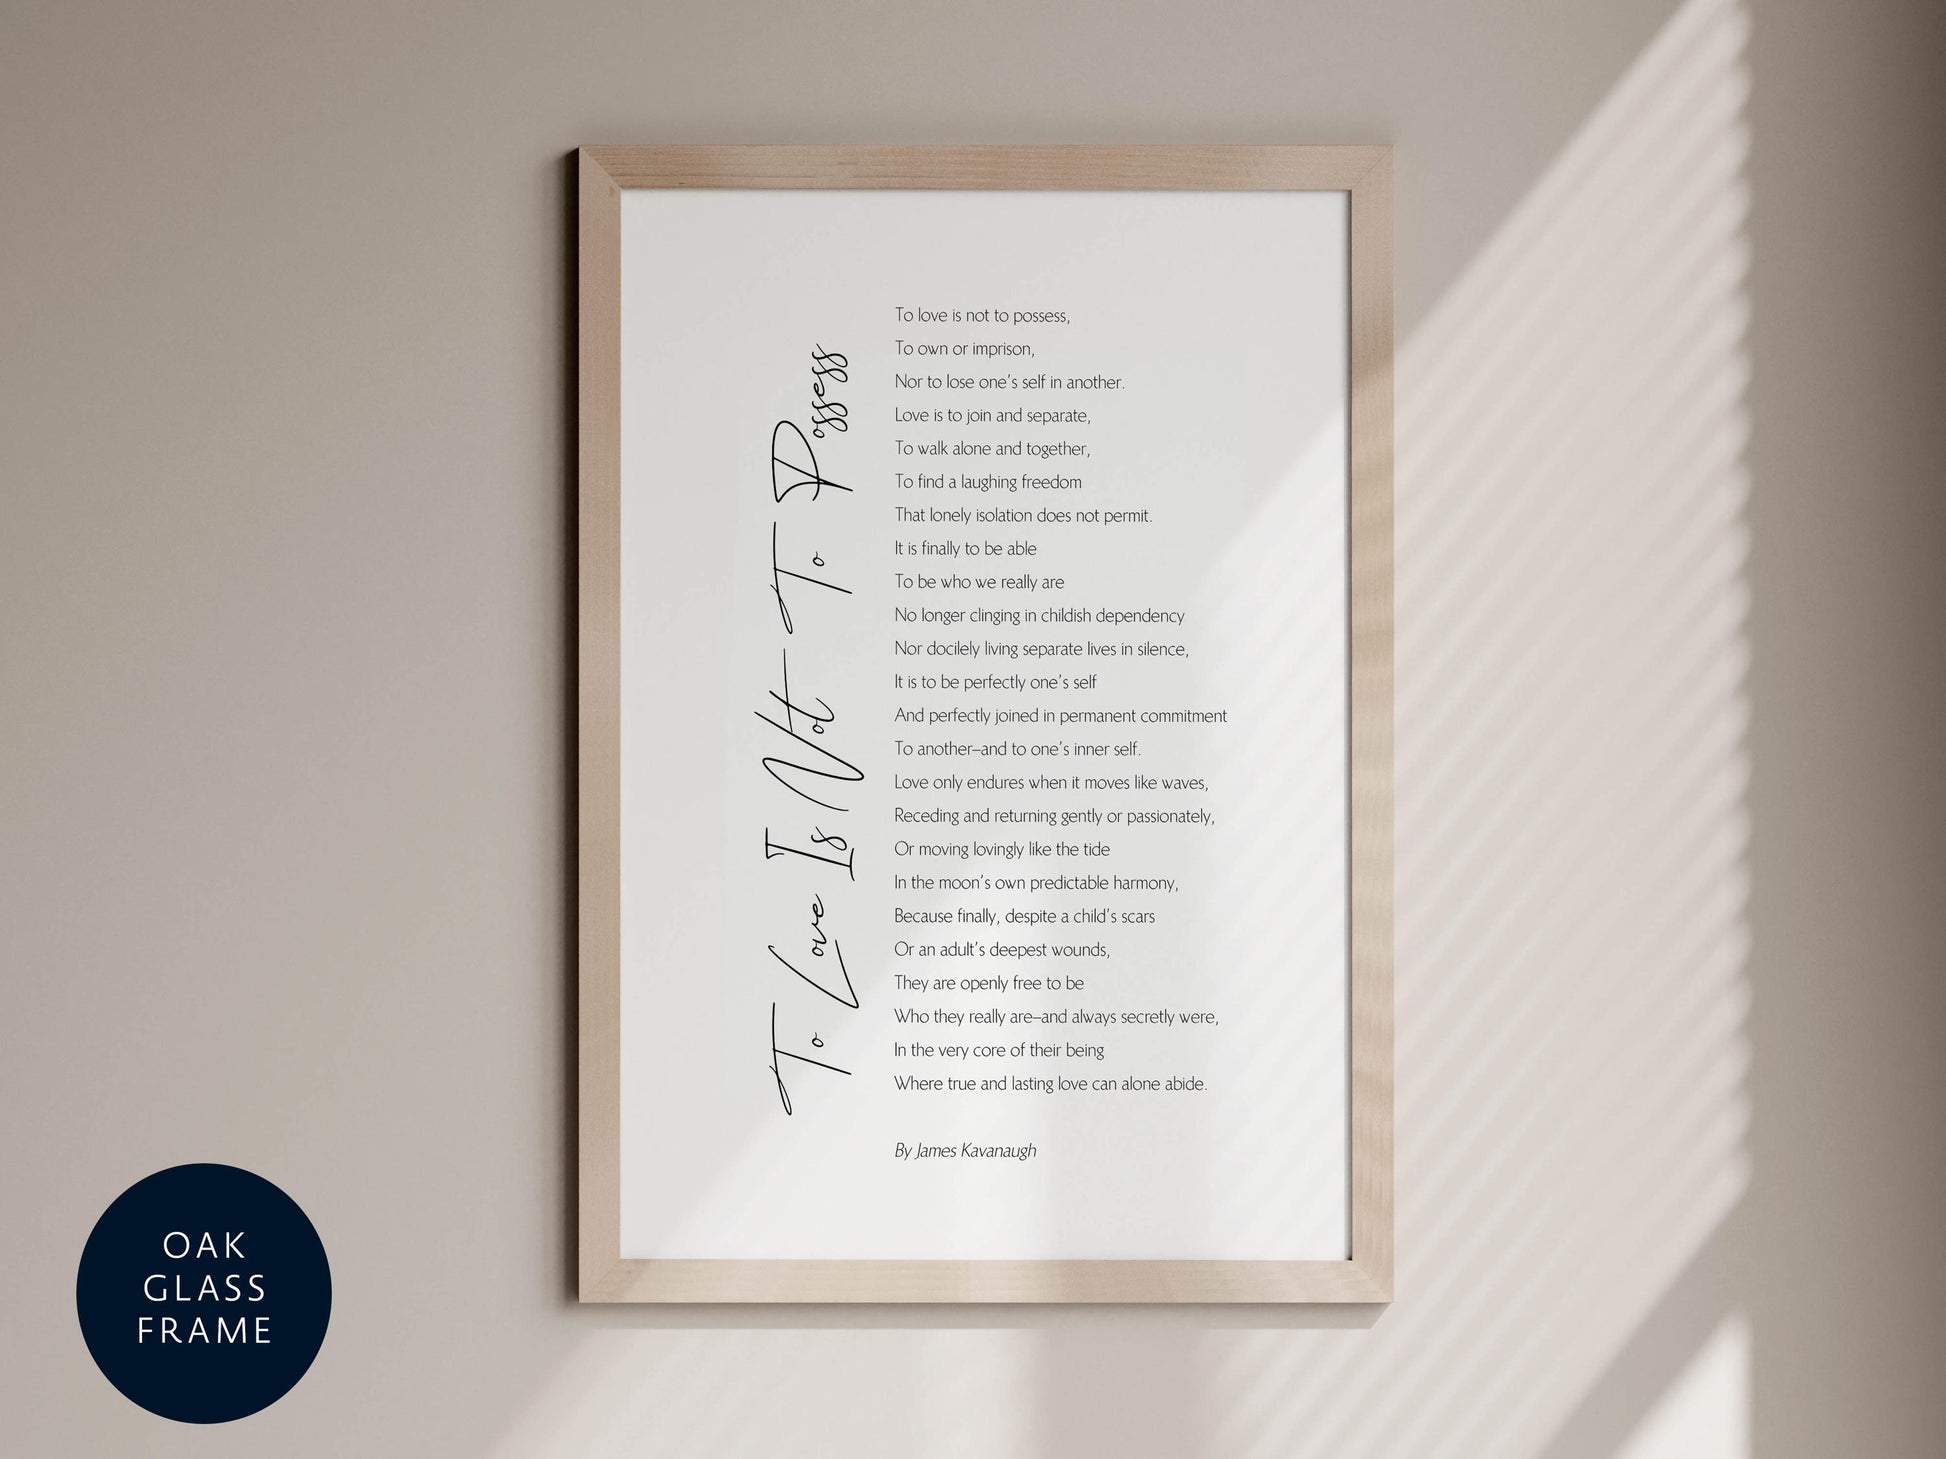 To Love Is Not To Possess
To love is not to possess,
To own or imprison,
Nor to lose one's self in another.
Love is to join and separate,
To walk alone and together,
To find a laughing freedom
That lonely isolation does not permit.
It is finally to be able
To be who we really are
No longer clinging in childish dependency
Nor docilely living separate lives in silence,
It is to be perfectly one's self
And perfectly joined in permanent commitment
To another–and to one's inner self.
Love only endures when it moves like waves,
Receding and returning gently or passionately,
Or moving lovingly like the tide
In the moon's own predictable harmony,
Because finally, despite a child's scars
Or an adult's deepest wounds,
They are openly free to be
Who they really are–and always secretly were,
In the very core of their being
Where true and lasting love can alone abide.
By James Kavanaugh
OAK
GLASS
FRAME